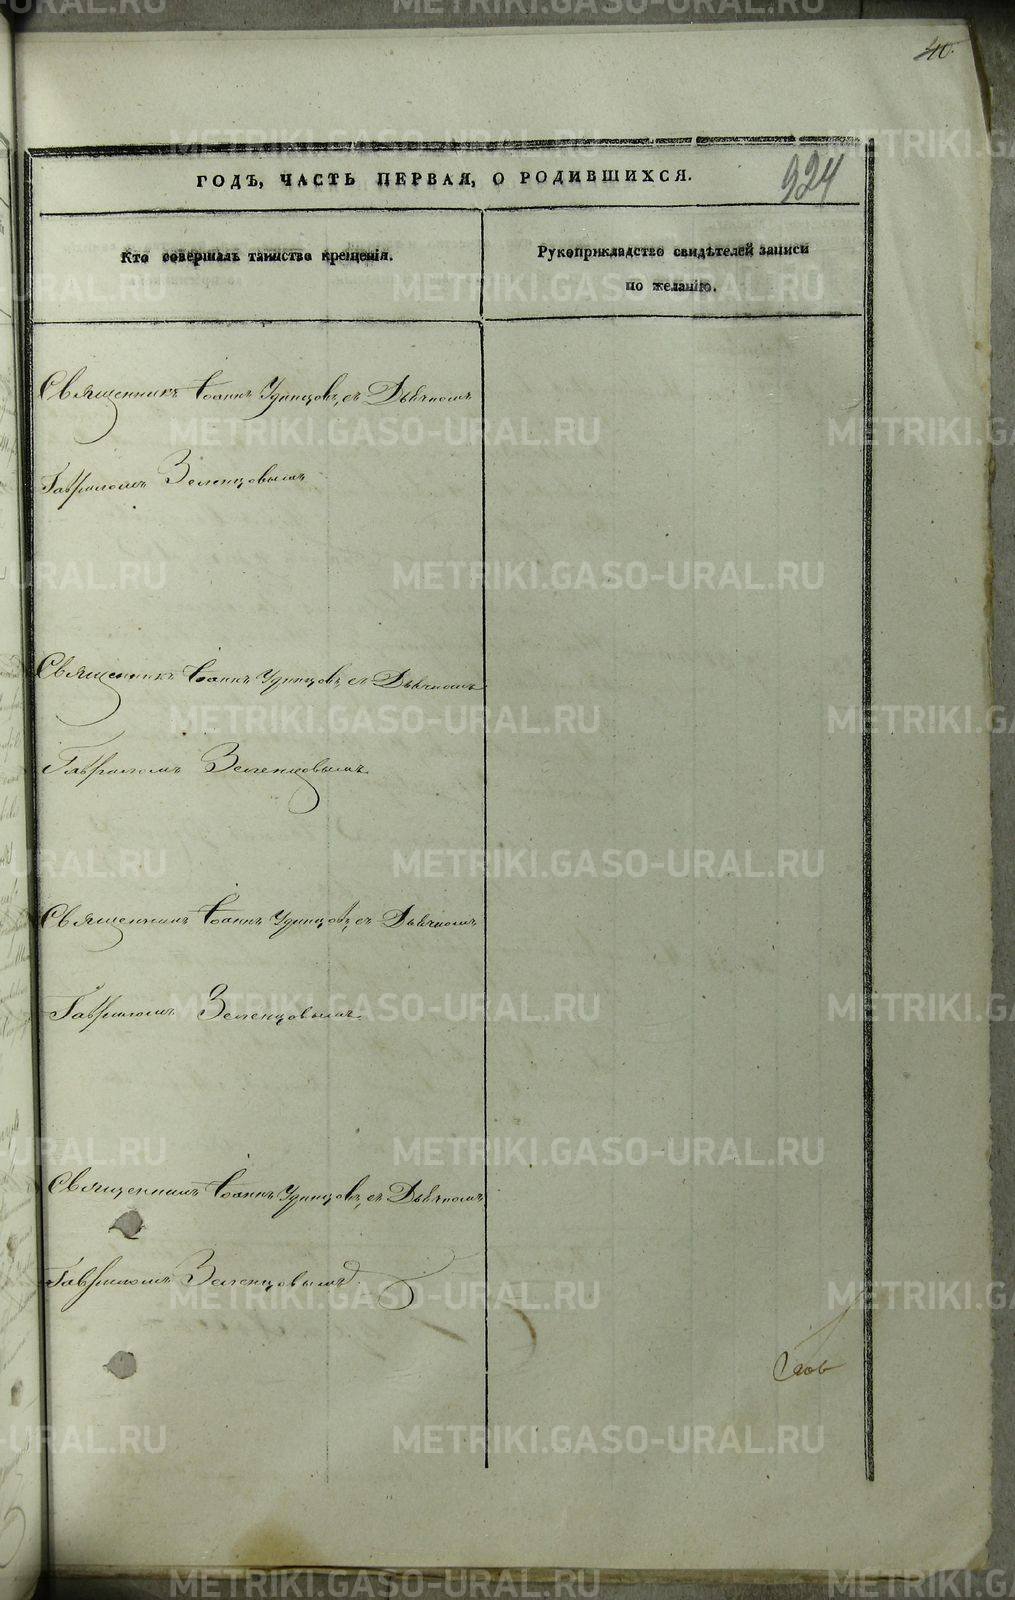 40.
ГОДЪ, ЧАСТЬ ПЕРВАЯ, О РОДИВШИХСЯ.
924
Кто совершалъ таинство крещенія.
Рукоприкладство свидѣтелей записи
по желанію.
Священникъ Іоаннъ Удинцовъ, съ Дьячкомъ
Гавриломъ Зеленцовымъ
Священникъ Іоаннъ Удинцовъ, съ Дьячкомъ
Гавриломъ Зеленцовымъ.
Священникъ Іоаннъ Удинцовъ, съ Дьячкомъ
Гавриломъ Зеленцовымъ.
Священникъ Іоаннъ Удинцовъ, съ Дьячкомъ
Гавриломъ Зеленцовымъ.
METRIKI.GASO-URAL.RU